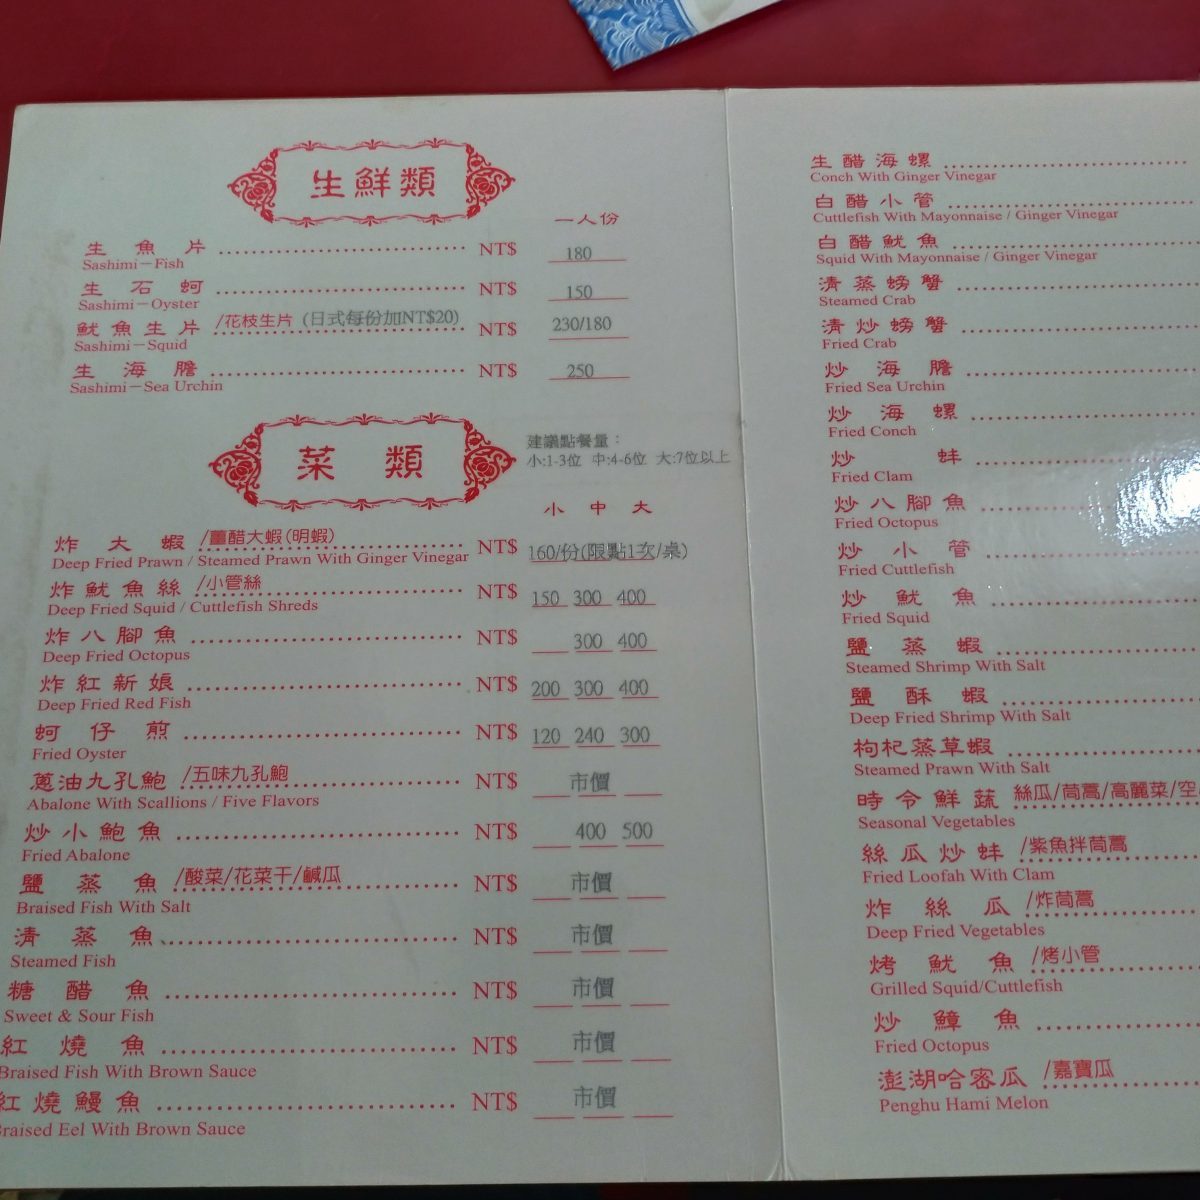 生鮮類
一人份
生魚片 NT$ 180
Sashimi－Fish
生石蚵 NT$ 150
Sashimi－Oyster
魷魚生片/花枝生片 (日式每份加NT$20) NT$ 230/180
Sashimi－Squid
生海膽 NT$ 250
Sashimi－Sea Urchin
菜類
建議點餐量：
小:1-3位 中:4-6位 大:7位以上
小 中 大
炸大蝦/薑醋大蝦(明蝦) NT$ 160/份(限點1次/桌)
Deep Fried Prawn / Steamed Prawn With Ginger Vinegar
炸魷魚絲/小管絲 NT$ 150 300 400
Deep Fried Squid / Cuttlefish Shreds
炸八腳魚 NT$ 300 400
Deep Fried Octopus
炸紅新娘 NT$ 200 300 400
Deep Fried Red Fish
蚵仔煎 NT$ 120 240 300
Fried Oyster
蔥油九孔鮑/五味九孔鮑 NT$ 市價
Abalone With Scallions / Five Flavors
炒小鮑魚 NT$ 400 500
Fried Abalone
鹽蒸魚/酸菜/花菜干/鹹瓜 NT$ 市價
Braised Fish With Salt
清蒸魚 NT$ 市價
Steamed Fish
糖醋魚 NT$ 市價
Sweet & Sour Fish
紅燒魚 NT$ 市價
Braised Fish With Brown Sauce
紅燒鰻魚 NT$ 市價
Braised Eel With Brown Sauce
生醋海螺
Conch With Ginger Vinegar
白醋小管
Cuttlefish With Mayonnaise / Ginger Vinegar
白醋魷魚
Squid With Mayonnaise / Ginger Vinegar
清蒸螃蟹
Steamed Crab
清炒螃蟹
Fried Crab
炒海膽
Fried Sea Urchin
炒海螺
Fried Conch
炒蚌
Fried Clam
炒八腳魚
Fried Octopus
炒小管
Fried Cuttlefish
炒魷魚
Fried Squid
鹽蒸蝦
Steamed Shrimp With Salt
鹽酥蝦
Deep Fried Shrimp With Salt
枸杞蒸草蝦
Steamed Prawn With Salt
時令鮮蔬 絲瓜/茼蒿/高麗菜/空
Seasonal Vegetables
絲瓜炒蚌/紫魚拌茼蒿
Fried Loofah With Clam
炸絲瓜/炸茼蒿
Deep Fried Vegetables
烤魷魚/烤小管
Grilled Squid/Cuttlefish
炒鱆魚
Fried Octopus
澎湖哈密瓜/嘉寶瓜
Penghu Hami Melon